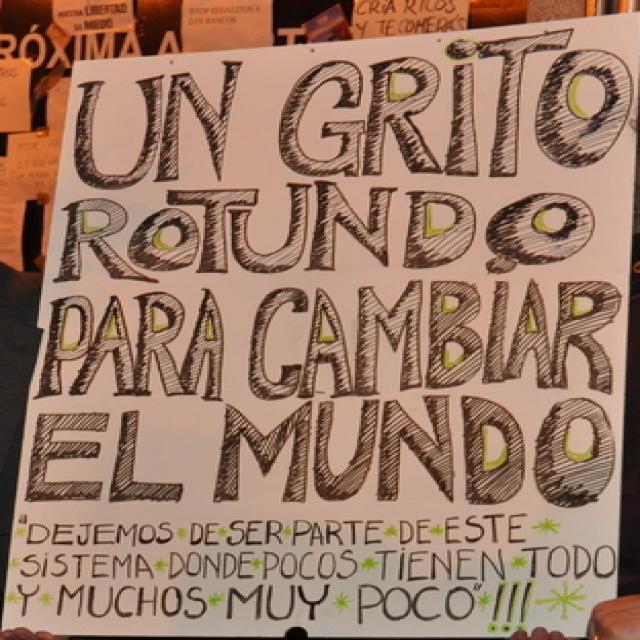 NUESTRA
LIBERTAD
STOP REGALITOS A
LOS BANCOS
CRIA RICOS
Y TE COMERÁN
RÓXIMA A
UN GRITO
ROTUNDO
PARA CAMBIAR
EL MUNDO
"DEJEMOS DE SER PARTE DE ESTE
SISTEMA DONDE POCOS TIENEN TODO
Y MUCHOS MUY POCO" !!!